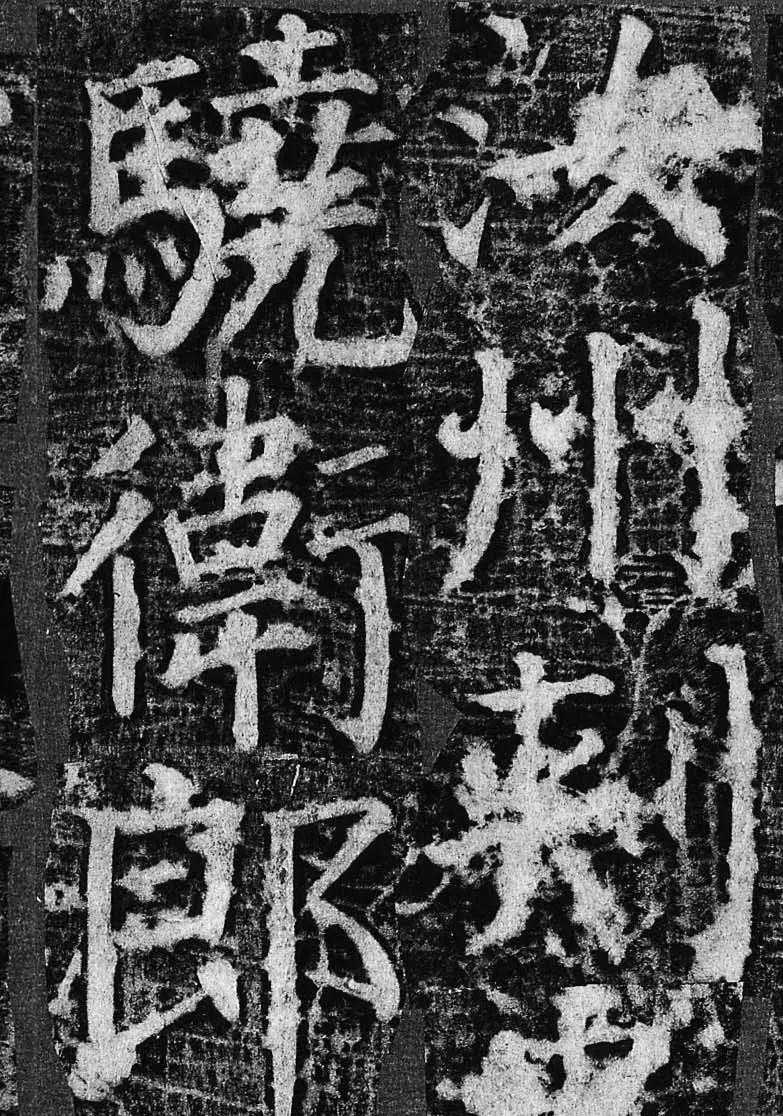 汝州刺史
驍衛郎